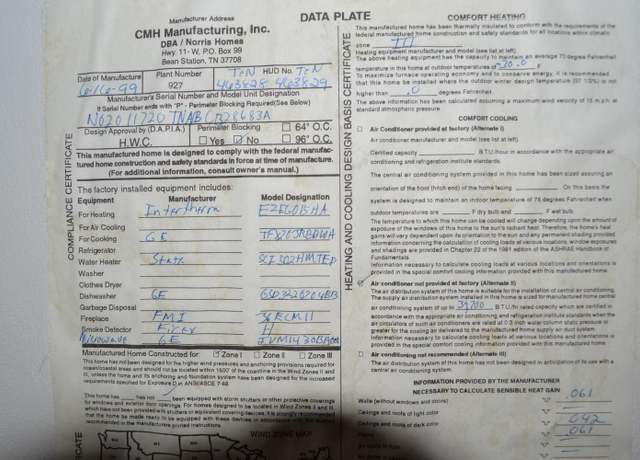 Manufacturer Address
CMH Manufacturing, Inc.
DBA / Norris Homes
Hwy. 11 - W, P.O. Box 99
Bean Station, TN 37708
Date of Manufacture
Plant Number
HUD No.
6-16-99
927
TEN TEN
463828 463829
Manufacturer's Serial Number and Model Unit Designation
If Serial Number ends with "P" - Perimeter Blocking Required (See Below)
Design Approval by (D.A.P.I.A.)
Perimeter Blocking
☐ 64" O.C.
H.W.C.
☐ Yes ☑ No
☐ 96" O.C.
This manufactured home is designed to comply with the federal manufac-
tured home construction and safety standards in force at time of manufacture.
(For additional information, consult owner's manual.)
COMPLIANCE CERTIFICATE
The factory installed equipment includes:
Equipment Manufacturer Model Designation
For Heating Intertherm
For Air Cooling
For Cooking GE
Refrigerator
Water Heater State
Washer
Clothes Dryer
Dishwasher GE
Garbage Disposal
Fireplace FMI 36ECMII
Smoke Detector Firex
Microwave GE
Manufactured Home Constructed for: ☑ Zone I ☐ Zone II ☐ Zone III
This home has not been designed for the higher wind pressures and anchoring provisions required for
ocean/coastal areas and should not be located within 1500' of the coastline in Wind Zones II and
III, unless the home and its anchoring and foundation system have been designed for the increased
requirements specified for Exposure D in ANSI/ASCE 7-88.
This home has ___ has not ___ been equipped with storm shutters or other protective coverings
for windows and exterior door openings. For homes designed to be located in Wind Zones II and III,
which have not been provided with shutters or equivalent covering devices, it is strongly recommended
that the home be made ready to be equipped with these devices in accordance with the method
recommended in the manufacturers printed instructions.
WIND ZONE MAP
DATA PLATE
HEATING AND COOLING DESIGN BASIS CERTIFICATE
COMFORT HEATING
This manufactured home has been thermally insulated to conform with the requirements of the
federal manufactured home construction and safety standards for all locations within climatic
zone III
Heating equipment manufacturer and model (see list at left)
The above heating equipment has the capacity to maintain an average 70 degree Fahrenheit
temperature in this home at outdoor temperatures of
To maximize furnace operating economy and to conserve energy, it is recommended
that this home be installed where the outdoor winter design temperature (97 1/2%) is not
higher than degrees Fahrenheit
The above information has been calculated assuming a maximum wind velocity of 15 m.p.h. at
standard atmospheric pressure.
COMFORT COOLING
☐ Air Conditioner provided at factory (Alternate I)
Air conditioner manufacturer and model (see list at left)
Certified capacity ___ B.T.U./hour in accordance with the appropriate air
conditioning and refrigeration institute standards.
The central air conditioning system provided in this home has been sized assuming an
orientation of the front (hitch end) of the home facing ___ On this basis the
system is designed to maintain an indoor temperature of 75 degrees Fahrenheit when
outdoor temperatures are ___ F dry bulb and ___ F wet bulb
The temperature to which this home can be cooled will change depending upon the amount of
exposure of the windows of this home to the sun's radiant heat. Therefore, the home's heat
gains will vary dependent upon its orientation to the sun and any permanent shading provided.
Information concerning the calculation of cooling loads at various locations, window exposures
and shadings are provided in Chapter 22 of the 1981 edition of the ASHRAE Handbook of
Fundamentals.
Information necessary to calculate cooling loads at various locations and orientations is
provided in the special comfort cooling information provided with this manufactured home.
Air conditioner not provided at factory (Alternate II)
The air distribution system of this home is suitable for the installation of central air conditioning.
The supply air distribution system installed in this home is sized for manufactured home central
air conditioning system of up to B.T.U./hr rated capacity which are certified in
accordance with the appropriate air conditioning and refrigeration institute standards when the
air circulators of such air conditioners are rated at 0.3 inch water column static pressure or
greater for the cooling air delivered to the manufactured home supply air duct system.
Information necessary to calculate cooling loads at various locations and orientations is
provided in the special comfort cooling information provided with this manufactured home.
☐ Air conditioning not recommended (Alternate III)
The air distribution system of this home has not been designed in anticipation of its use with a
central air conditioning system.
INFORMATION PROVIDED BY THE MANUFACTURER
NECESSARY TO CALCULATE SENSIBLE HEAT GAIN
Walls (without windows and doors) .061
Ceilings and roofs of light color
Ceilings and roofs of dark color .042
Floors .061